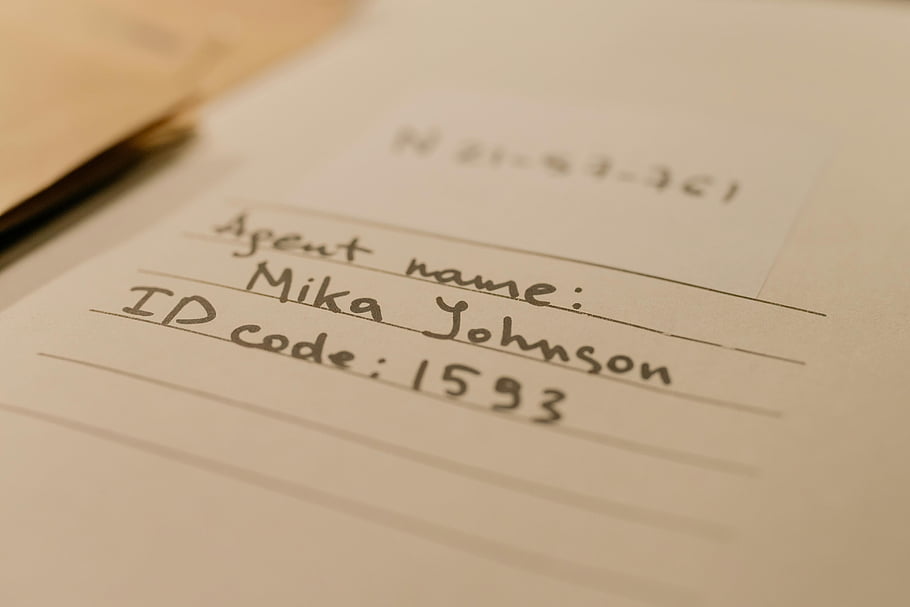 N 21-57-761
Agent name:
Mika Johnson
ID code: 1593